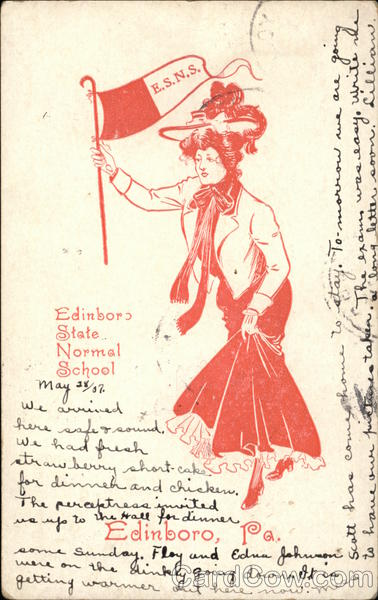 E.S.N.S.
Edinboro
State
Normal
School
May 28/07.
We arrived
here safe & sound.
We had fresh
strawberry short-cake
for dinner and chicken.
The perceptress invited
us up to the Hall for dinner
Edinboro, Pa.
some Sunday. Floy and Edna Johnson
were on the dinky going down. It is
getting warmer out here now.
Scott has come home to stay. To-morrow we are going
to have our pictures taken. The exams was easy. Write me
a long letter soon. Lillian.
CardCow.com